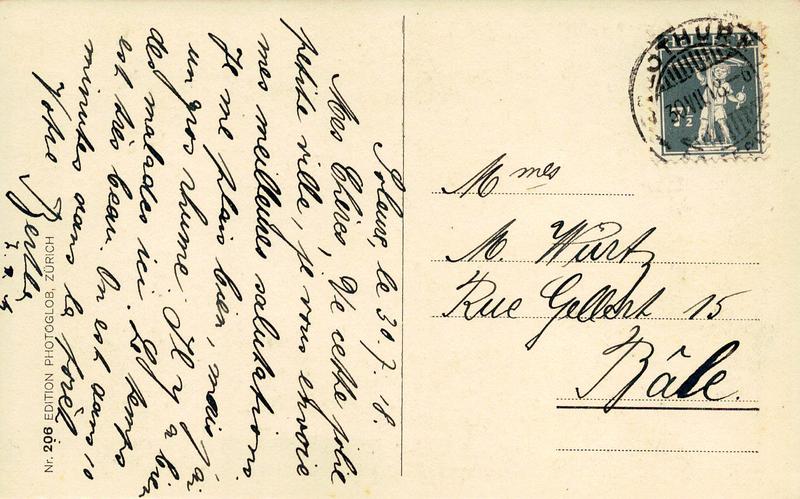 Soleure, le 30.7.18.
Mes Chères, De cette jolie
petite ville, je vous envoie
mes meilleures salutations.
Je me plais bien, mais j'ai
un gros rhume. Il y a bien
des malades ici. Le temps
est très beau. On est dans 10
minutes dans la forêt.
Votre Bertha
Nr. 206 EDITION PHOTOGLOB, ZÜRICH
SOLOTHURN
30.VII.18.-6
7 1/2
Mmes
M. Würtz
Rue Gellert 15
Bâle.